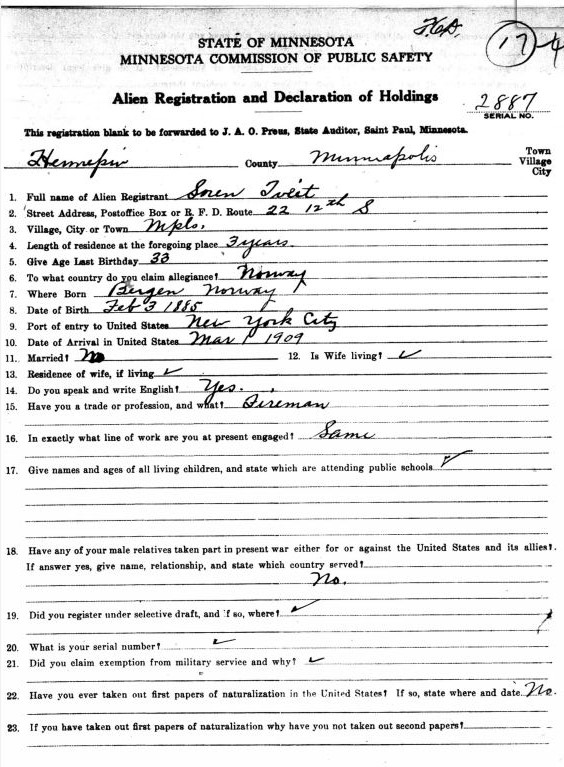 17
STATE OF MINNESOTA
MINNESOTA COMMISSION OF PUBLIC SAFETY
Alien Registration and Declaration of Holdings
2887
SERIAL NO.
This registration blank to be forwarded to J. A. O. Preus, State Auditor, Saint Paul, Minnesota.
Hennepin County Minneapolis Town
Village
City
1. Full name of Alien Registrant Soren Tveit
2. Street Address, Postoffice Box or R. F. D. Route 22 12th S
3. Village, City or Town Mpls.
4. Length of residence at the foregoing place 3 years.
5. Give Age Last Birthday 33
6. To what country do you claim allegiance? Norway
7. Where Born Bergen Norway
8. Date of Birth Feb 3 1885
9. Port of entry to United States New York City
10. Date of Arrival in United States Mar 1 1909
11. Married? No 12. Is Wife living? ✓
13. Residence of wife, if living ✓
14. Do you speak and write English? Yes.
15. Have you a trade or profession, and what? Fireman
16. In exactly what line of work are you at present engaged? Same
17. Give names and ages of all living children, and state which are attending public schools. ✓
18. Have any of your male relatives taken part in present war either for or against the United States and its allies?
If answer yes, give name, relationship, and state which country served?
No.
19. Did you register under selective draft, and if so, where? ✓
20. What is your serial number? ✓
21. Did you claim exemption from military service and why? ✓
22. Have you ever taken out first papers of naturalization in the United States? If so, state where and date. No.
23. If you have taken out first papers of naturalization why have you not taken out second papers?